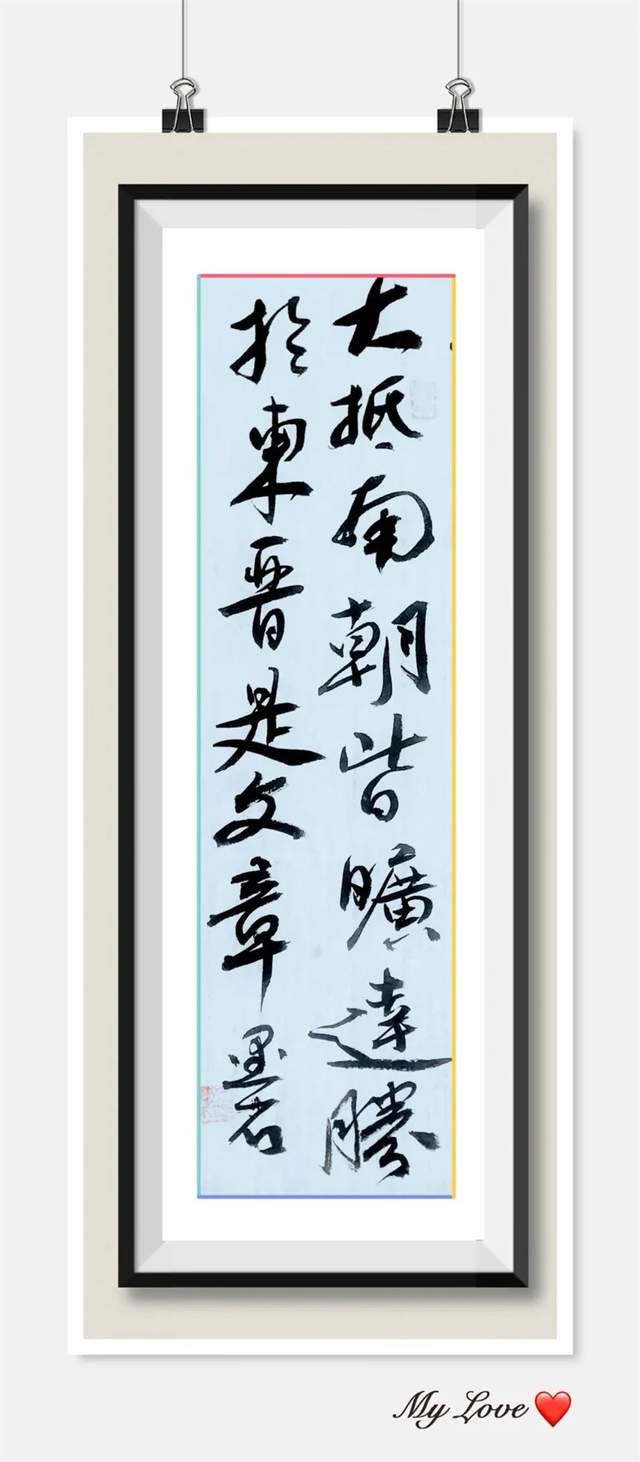 大抵南朝皆曠達勝
於東晋是文章
My Love